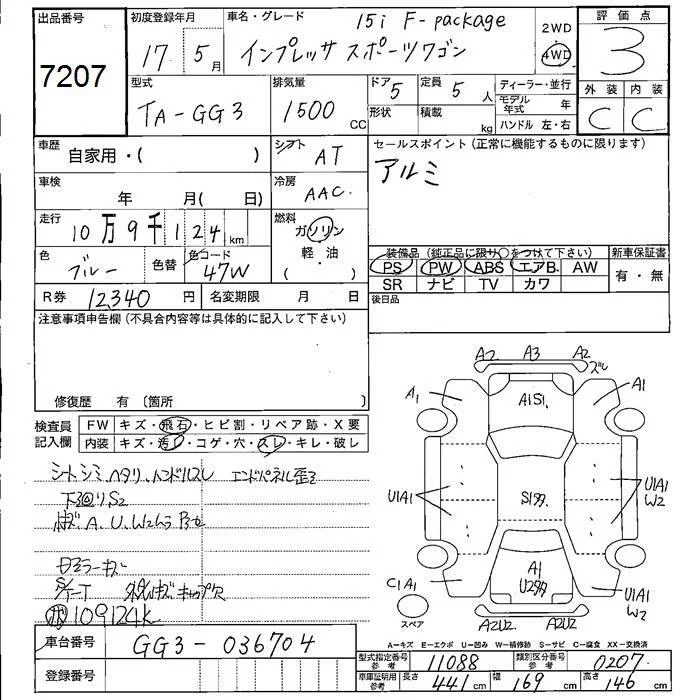 出品番号
7207
初度登録年月
17年 5月
車名・グレード
15i F-package
インプレッサ スポーツワゴン
2WD
4WD
評価点
3
型式
TA-GG3
排気量
1500 CC
ドア 5
定員 5 人
形状
積載 kg
ディーラー・並行
モデル年式 年
ハンドル 左・右
外装
C
内装
C
車歴
自家用・( )
シフト
AT
セールスポイント(正常に機能するものに限ります)
アルミ
車検
年 月( 日)
冷房
AAC
走行
10万9千124km
燃料
ガソリン
軽・油
( )
色
ブルー
色替
色コード
47W
装備品(純正品に限り○をつけて下さい)
PS PW ABS エアB. AW
SR ナビ TV カワ
新車保証書
有・無
R券 12340円
名変期限 月 日
後日品
注意事項申告欄(不具合内容等は具体的に記入して下さい)
修復歴 有〔箇所 〕
検査員記入欄
FW キズ・飛石・ヒビ割・リペア跡・X要
内装 キズ・汚れ・コゲ・穴・スレ・キレ・破レ
シートシミ、ヘタリ、ハンドルスレ エンドパネル歪ミ
下廻りS2
A、U、W2
ミラーキズ
キャップ欠
109124K
A2 A3 A2 ズレ
A1 A1
A1S1
U1A1
U1A1
W2
C1A1
A1
U1A1
W2
スペア
A2U2 A2U2
A=キズ E=エクボ U=凹み W=補修跡 S=サビ C=腐食 XX=交換済
車台番号
GG3-036704
登録番号
型式指定番号 参考 11088
類別区分番号 参考 0207
車庫証明用 参考 長さ 441cm 幅 169cm 高さ 146cm